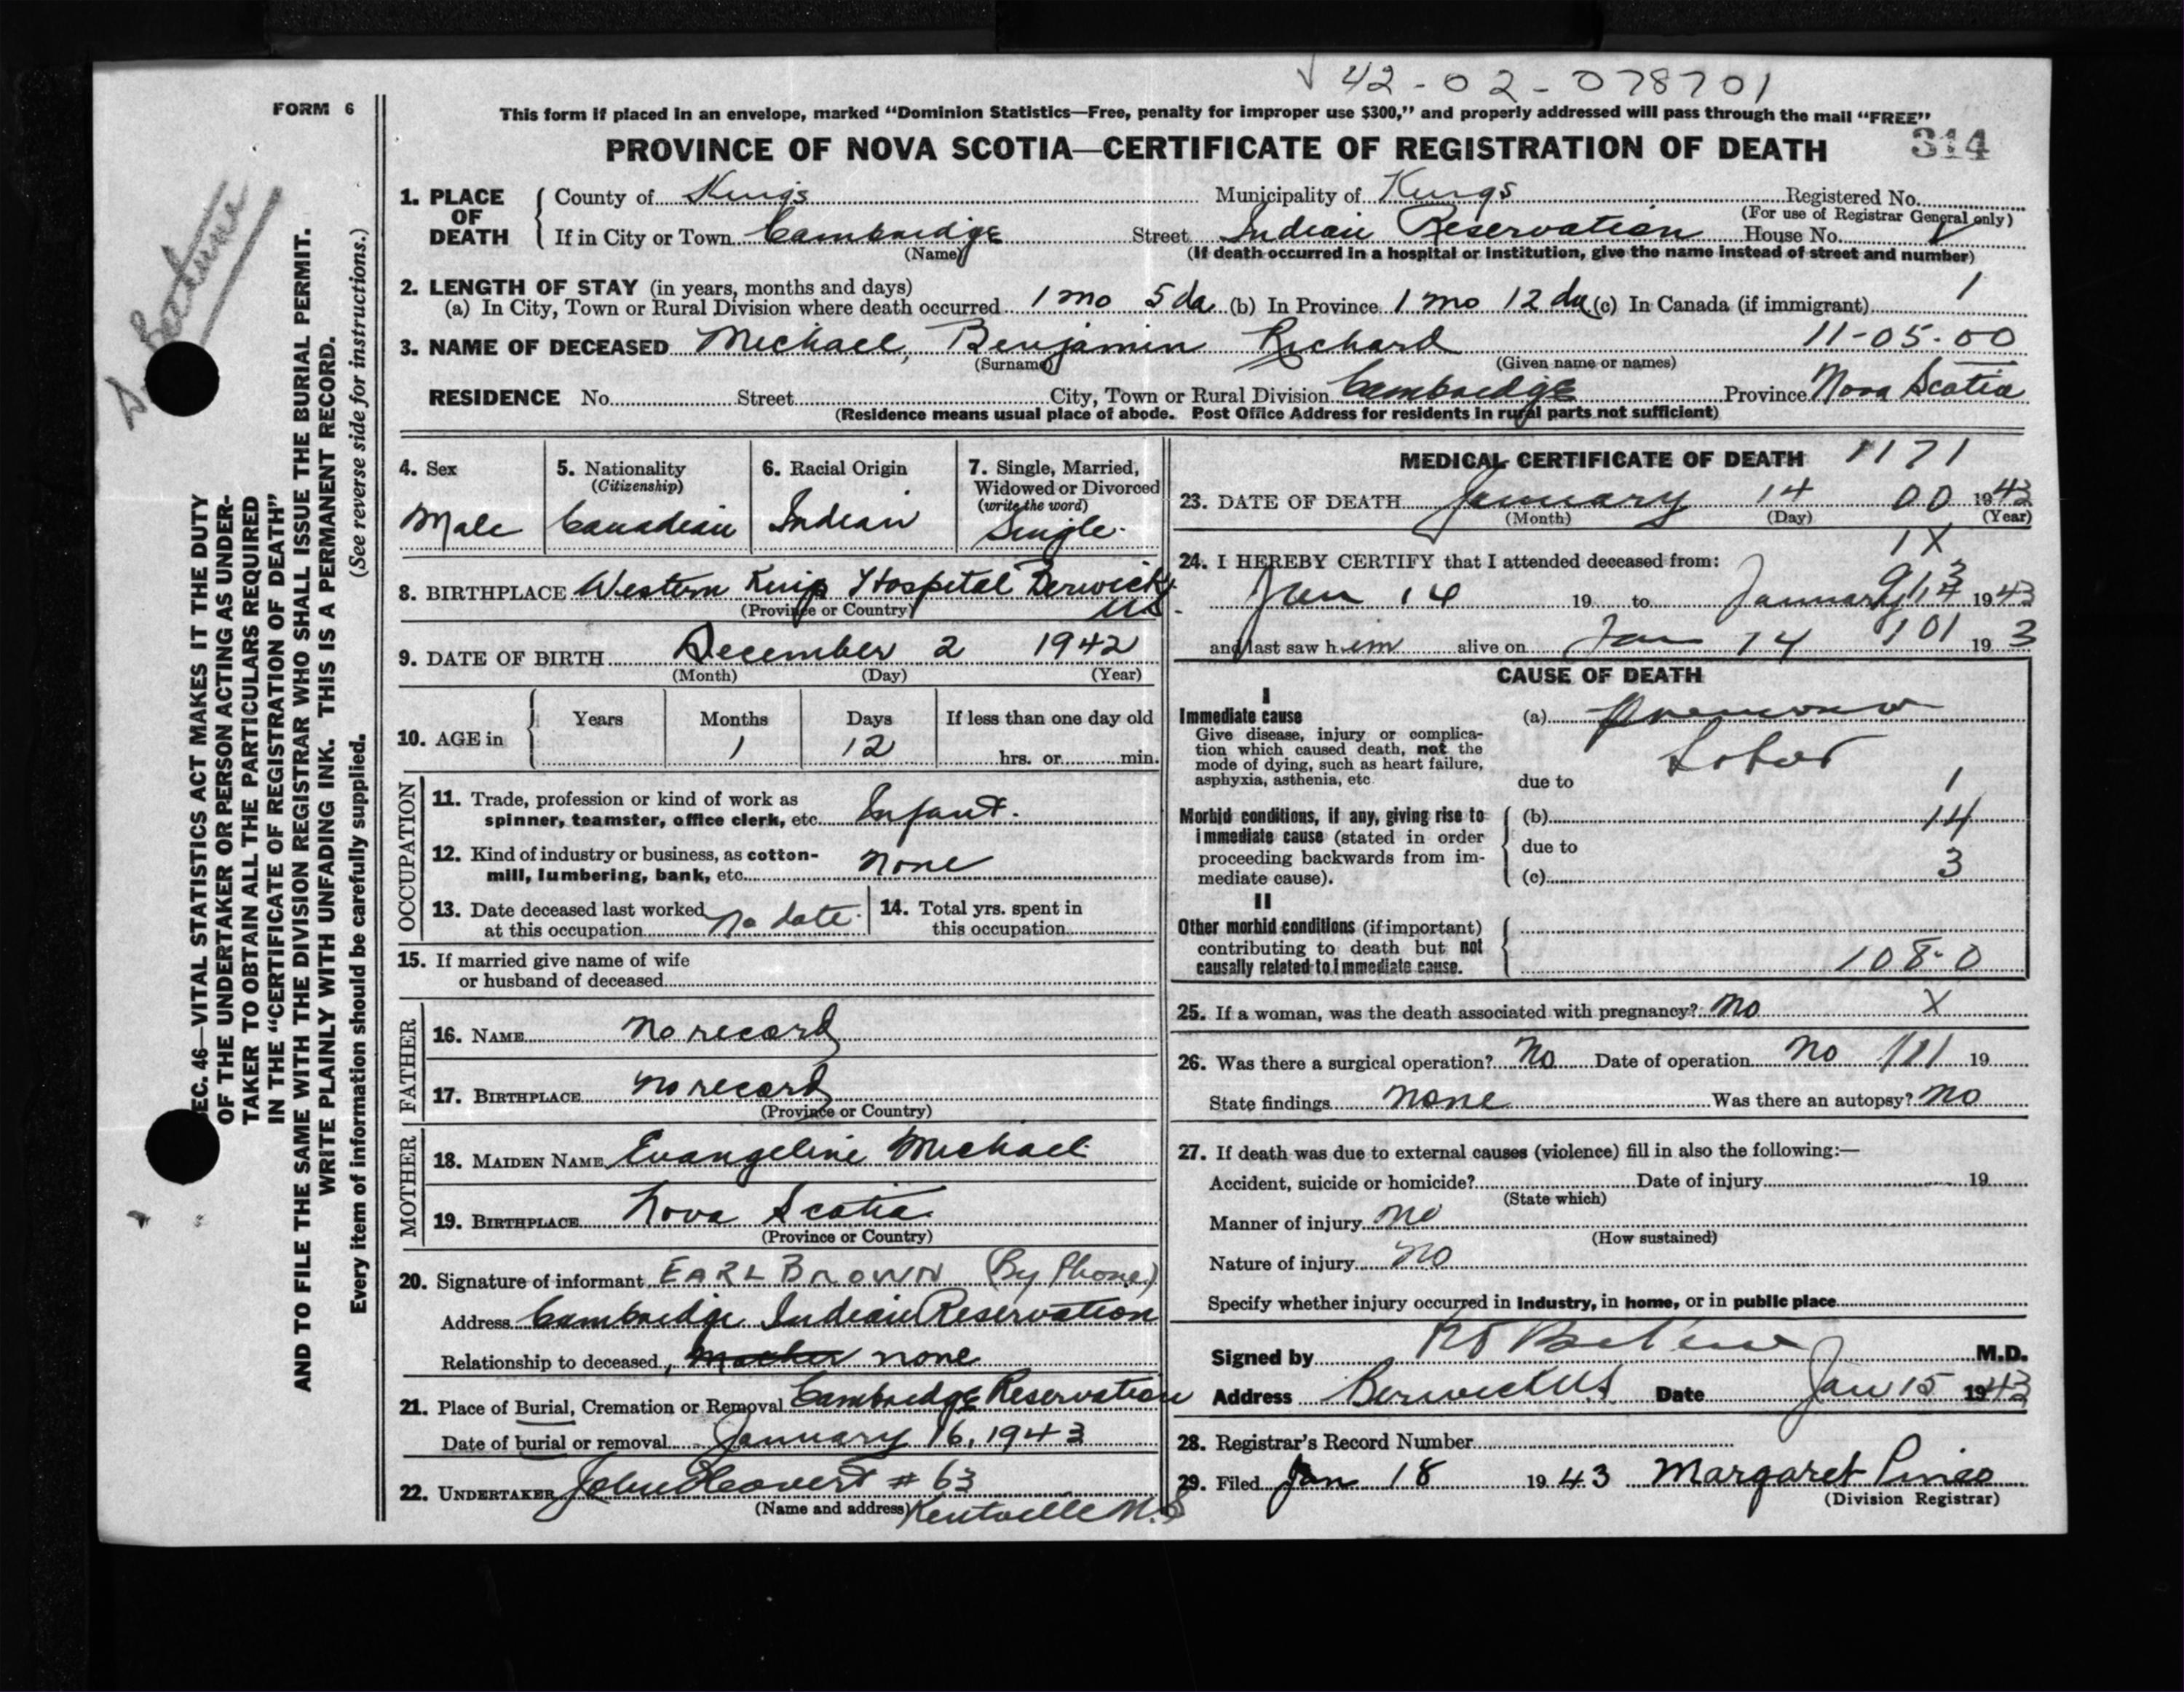 42-02-078701
FORM 6
This form if placed in an envelope, marked "Dominion Statistics—Free, penalty for improper use $300," and properly addressed will pass through the mail "FREE"
PROVINCE OF NOVA SCOTIA—CERTIFICATE OF REGISTRATION OF DEATH 314
1. PLACE OF DEATH County of Kings Municipality of Kings Registered No.
(For use of Registrar General only)
If in City or Town Cambridge Street Indian Reservation House No.
(Name) (If death occurred in a hospital or institution, give the name instead of street and number)
2. LENGTH OF STAY (in years, months and days)
(a) In City, Town or Rural Division where death occurred 1 mo 5 da (b) In Province 1 mo 12 da (c) In Canada (if immigrant) 1
3. NAME OF DECEASED Michael, Benjamin Richard 11-05-00
(Surname) (Given name or names)
RESIDENCE No. Street City, Town or Rural Division Cambridge Province Nova Scotia
(Residence means usual place of abode. Post Office Address for residents in rural parts not sufficient)
4. Sex
Male
5. Nationality
(Citizenship)
Canadian
6. Racial Origin
Indian
7. Single, Married,
Widowed or Divorced
(write the word)
Single.
8. BIRTHPLACE Western Kings Hospital Berwick
(Province or Country) NS.
9. DATE OF BIRTH December 2 1942
(Month) (Day) (Year)
10. AGE in Years Months Days If less than one day old
1 12 hrs. or min.
OCCUPATION
11. Trade, profession or kind of work as
spinner, teamster, office clerk, etc. Infant.
12. Kind of industry or business, as cotton-
mill, lumbering, bank, etc. None
13. Date deceased last worked
at this occupation No date.
14. Total yrs. spent in
this occupation
15. If married give name of wife
or husband of deceased
FATHER
16. NAME No record
17. BIRTHPLACE no record
(Province or Country)
MOTHER
18. MAIDEN NAME Evangeline Michael
19. BIRTHPLACE Nova Scotia
(Province or Country)
20. Signature of informant EARL BROWN (By Phone)
Address Cambridge Indian Reservation
Relationship to deceased, Mother none
21. Place of Burial, Cremation or Removal Cambridge Reservation
Date of burial or removal January 16, 1943
22. UNDERTAKER # 63
(Name and address) Kentville N.S
MEDICAL CERTIFICATE OF DEATH 1171
23. DATE OF DEATH January 14 00 1943
(Month) (Day) (Year)
1X
24. I HEREBY CERTIFY that I attended deceased from:
Jan 14 19 to January 1943
and last saw him alive on Jan 14 101 19 3
CAUSE OF DEATH
I
Immediate cause
Give disease, injury or complica-
tion which caused death, not the
mode of dying, such as heart failure,
asphyxia, asthenia, etc
(a) Pneumonia
Lobar
due to 1
Morbid conditions, if any, giving rise to
immediate cause (stated in order
proceeding backwards from im-
mediate cause).
(b) 14
due to
(c) 3
II
Other morbid conditions (if important)
contributing to death but not
causally related to immediate cause.
108-0
25. If a woman, was the death associated with pregnancy? no X
26. Was there a surgical operation? No Date of operation No 19
State findings none Was there an autopsy? no
27. If death was due to external causes (violence) fill in also the following:—
Accident, suicide or homicide? Date of injury 19
(State which)
Manner of injury no
(How sustained)
Nature of injury no
Specify whether injury occurred in industry, in home, or in public place
Signed by M.D.
Address Berwick NS Date Jan 15 1943
28. Registrar's Record Number
29. Filed Jan 18 1943 Margaret Pineo
(Division Registrar)
EC. 46—VITAL STATISTICS ACT MAKES IT THE DUTY
OF THE UNDERTAKER OR PERSON ACTING AS UNDER-
TAKER TO OBTAIN ALL THE PARTICULARS REQUIRED
IN THE "CERTIFICATE OF REGISTRATION OF DEATH"
AND TO FILE THE SAME WITH THE DIVISION REGISTRAR WHO SHALL ISSUE THE BURIAL PERMIT.
WRITE PLAINLY WITH UNFADING INK. THIS IS A PERMANENT RECORD.
Every item of information should be carefully supplied. (See reverse side for instructions.)